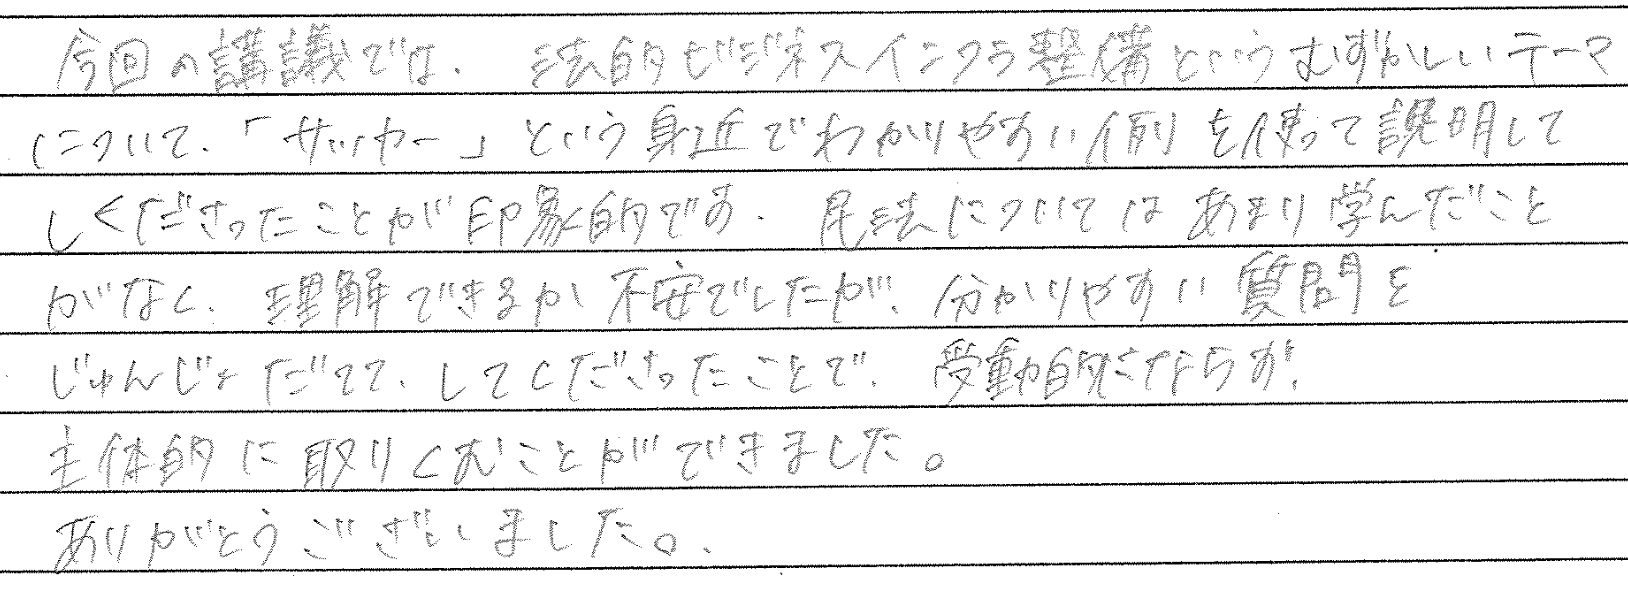 今回の講議では、法的ビジネスインフラ整備というむずかしいテーマ
について、「サッカー」という身近でわかりやすい例を使って説明して
しくださったことが印象的です。民法についてはあまり学んだこと
がなく、理解できるか不安でしたが、分かりやすい質問を
じゅんじょだてて、してくださったことで、受動的さながらが、
主体的に取りくむことができました。
ありがとうございました。